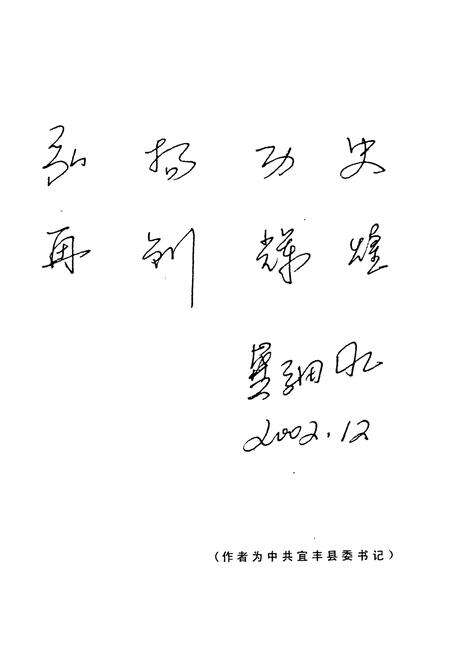 弘扬功史
再创辉煌
2002.12
（作者为中共宜丰县委书记）